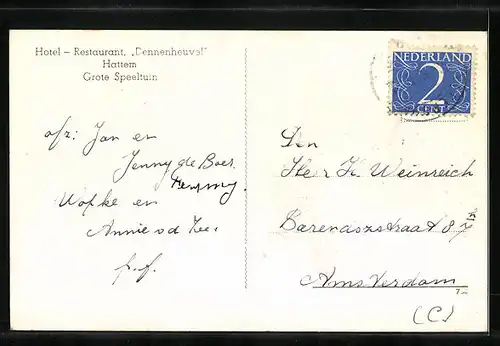 Hotel – Restaurant, „Dennenheuvel"
Hattem
Grote Speeltuin
NEDERLAND
2
CENT
afz: Jan en
Jenny de Boer
Wopke en
Annie v d Zee
p.f.
Den
Heer K. Weinreich
Barentszstraat 87
Amsterdam
(C)